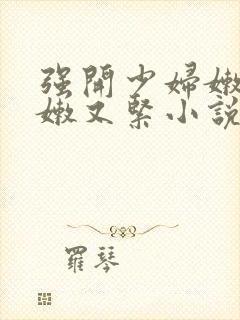 强開少婦嫩
嫩又緊小說
羅琴